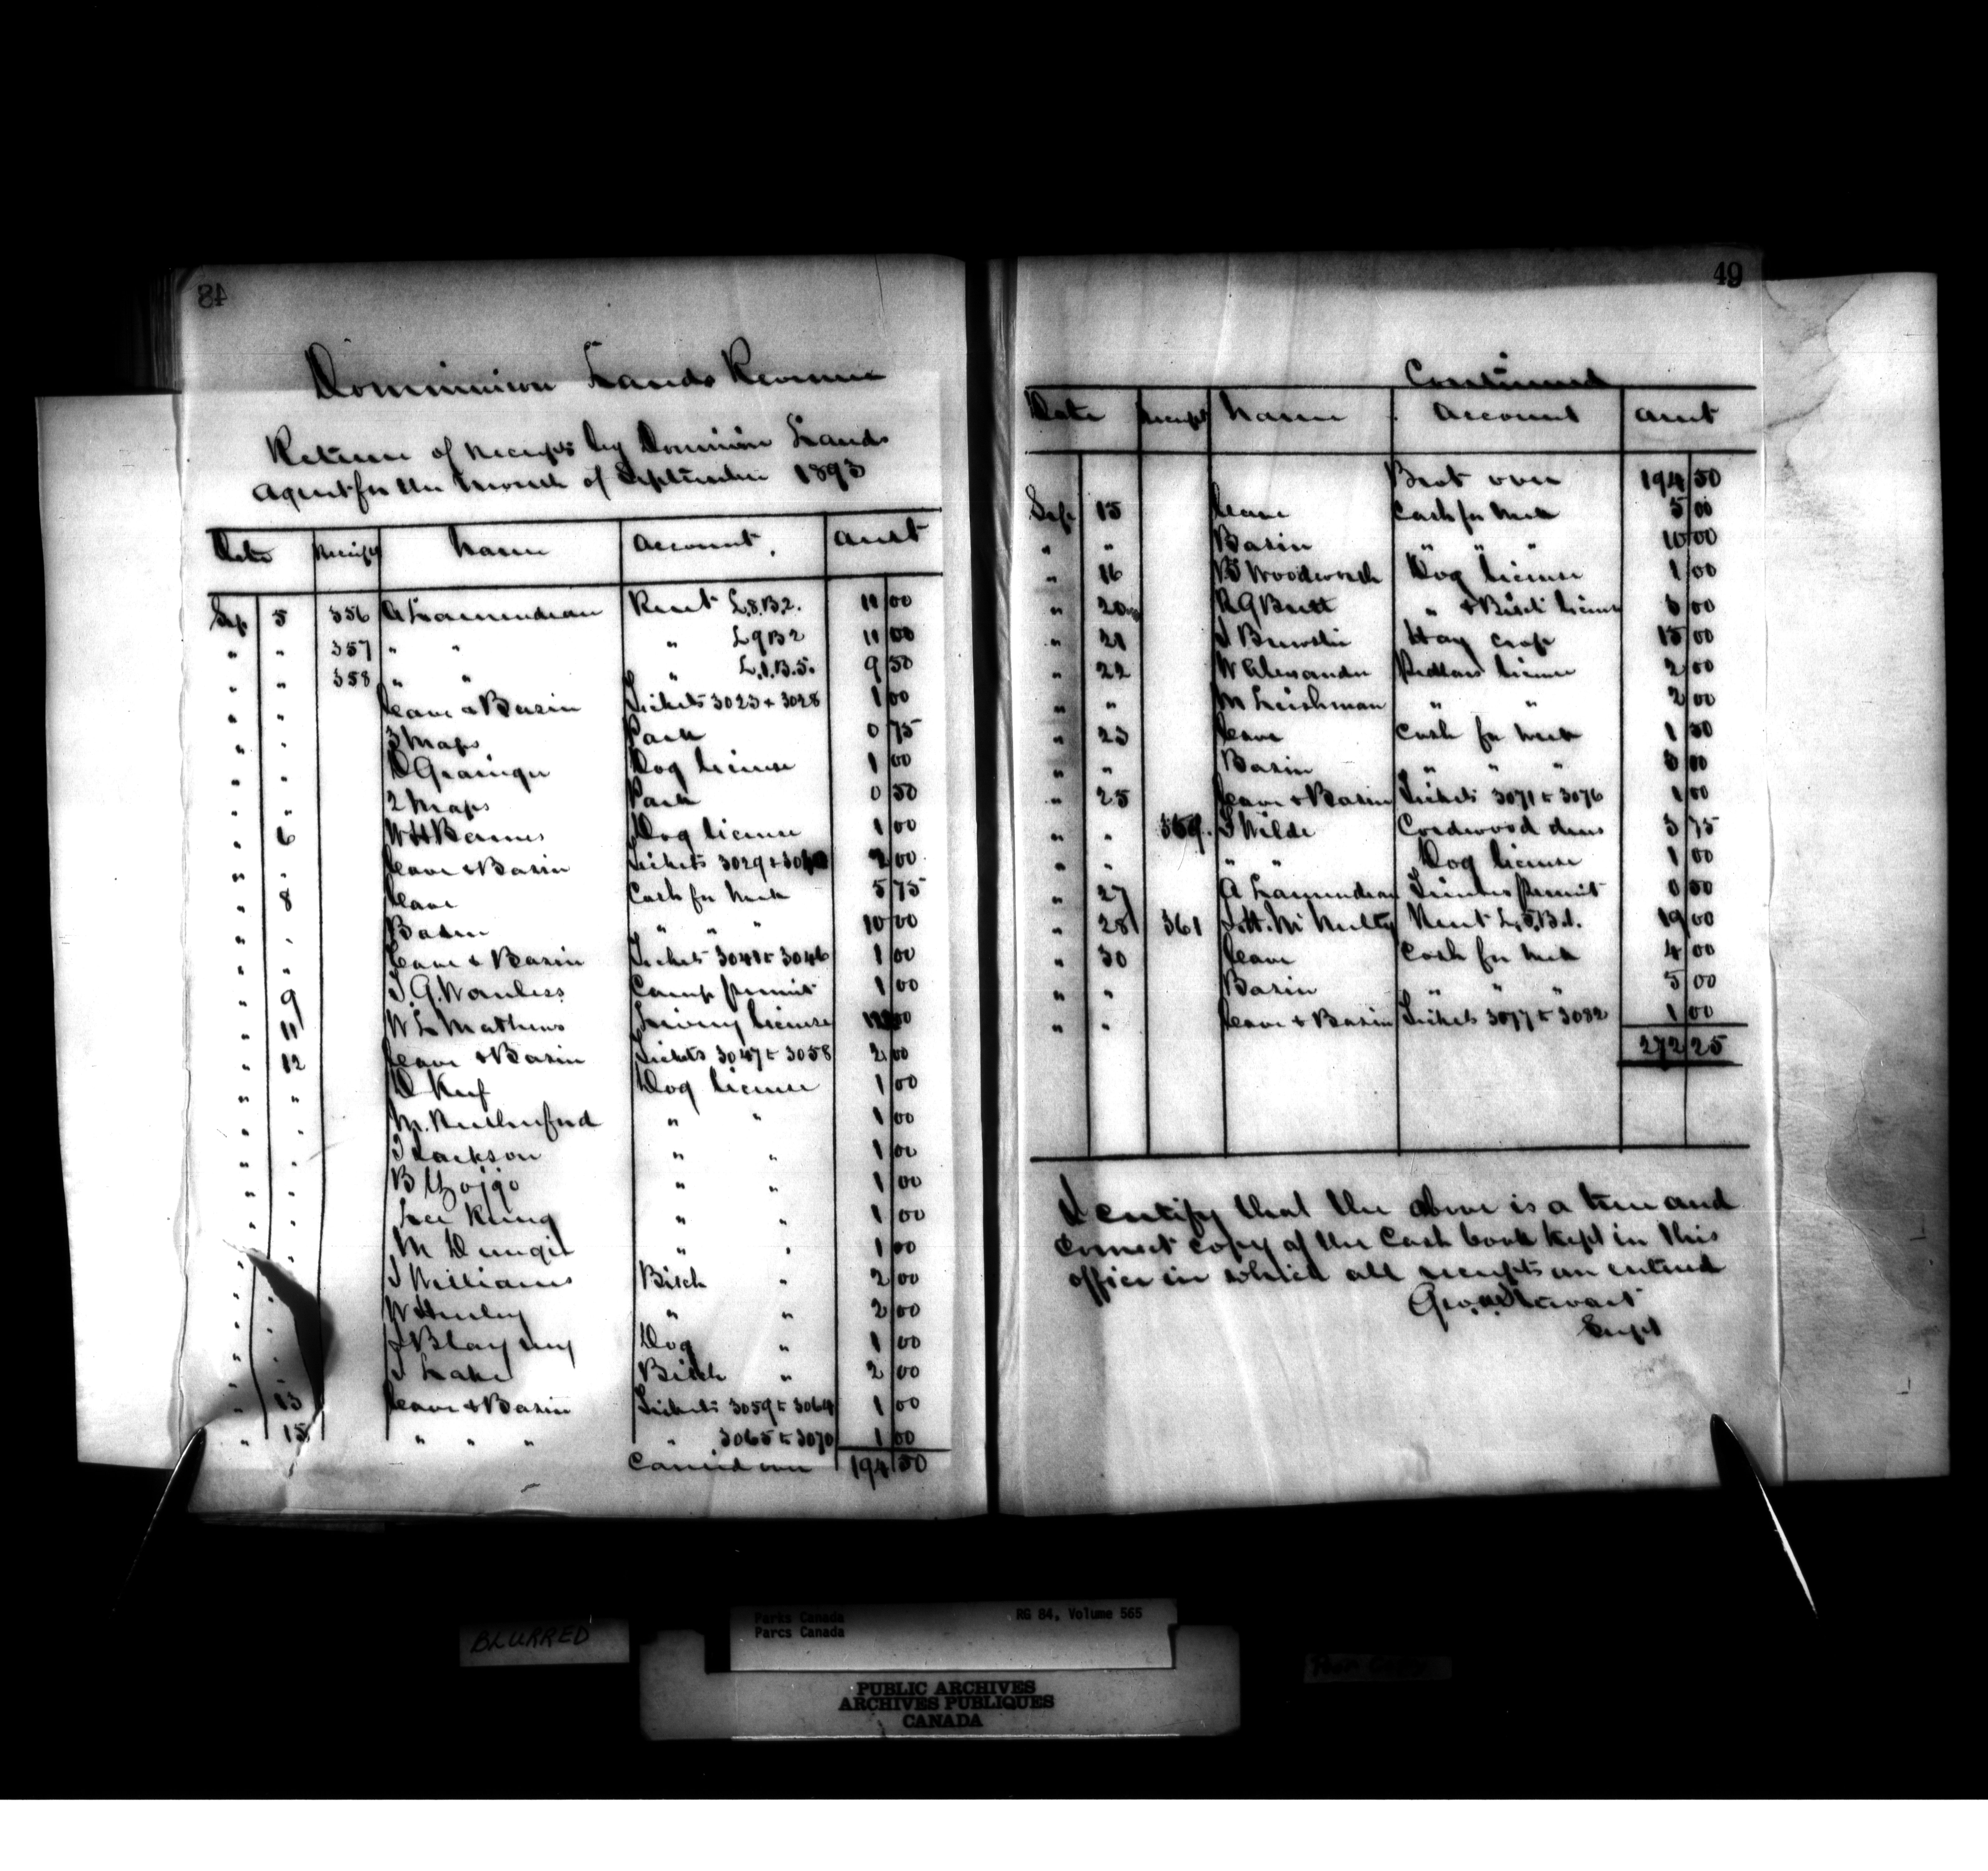 48
Dominion Lands Revenue
Return of receipts by Dominion Lands
Agent for the month of September 1893
Date Receipt Name Account Amt
Sep 5 356 A Lamendeau Rent L.8.B.2. 11 00
" " 357 " " " L9B2 11 00
" " 358 " " " L.1.B.5. 9 50
" " Cave & Basin Tickets 3023 to 3028 1 00
" " 3 Maps Park 0 75
" " D Grainger Dog License 1 00
" " 2 Maps Park 0 50
" 6 W H Barnes Dog license 1 00
" " Cave & Basin Tickets 3029 to 2 00
" 8 Cave Cash for week 5 75
" " Basin " " " 10 00
" " Cave & Basin Tickets 3041 to 3046 1 00
" 9 T.G. Wanless Camp permit 1 00
" 11 W L Mathews Livery License 00
" 12 Cave & Basin Tickets 3047 to 3058 2 00
" " D Keef Dog License 1 00
" " M. Rutherford " " 1 00
" " Jackson " " 1 00
" " B " " 1 00
" " Lee Kung " " 1 00
" " M " " 1 00
" " J Williams Bitch " 2 00
" " W Hurley " " 2 00
" " Dog " 1 00
" " J Lake Bitch " 2 00
" 13 Cave & Basin Tickets 3059 to 3064 1 00
" 15 " " " " 3065 to 3070 1 00
Carried over 194 50
49
Continued
Date Receipt Name Account Amt
Brot over 194 50
Sep 15 Cave Cash for week 5 00
" " Basin " " " 10 00
" 16 B Woodworth Dog License 1 00
" 20 R G Brett " & Bitch License 3 00
" 21 J Brewster Hay crop 15 00
" 22 W Alexander Pedlars license 2 00
" " M Leishman " " 2 00
" 23 Cave Cash for week 1 50
" " Basin " " " 3 00
" 25 Cave & Basin Tickets 3071 to 3076 1 00
" " 359. J Wilde Cordwood dues 3 75
" " " " Dog License 1 00
" 27 A Lamendeau Timber permit 0 50
" 28 361 J.H. McNulty Rent L,5,B.1. 19 00
" 30 Cave Cash for week 4 00
" " Basin " " " 5 00
" " Cave & Basin Tickets 3077 to 3082 1 00
272 25
I certify that the above is a true and
correct copy of the Cash book kept in this
office in which all receipts are entered
Geo. A. Stewart
Supt
BLURRED
Parks Canada RG 84, Volume 565
Parcs Canada
PUBLIC ARCHIVES
ARCHIVES PUBLIQUES
CANADA